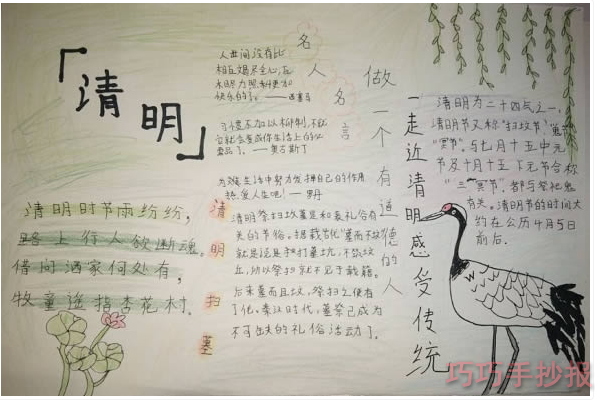 「清明」
名人名言
人世间没有比
互相竭尽全心,互
相尽力照料更加
快乐的了。——西塞马
习惯不加以抑制,不久
它就会变成你生活上的必
需品了。——奥古斯丁
为在生活中努力发挥自己的作用
热爱人生吧!——罗丹
做一个有道德的人
一走近清明感受传统
清明为二十四气之一,
清明节又称"扫坟节""鬼节"
"冥节",与七月十五中元
节及十月十五下元节合称
"三冥节",都与祭祀鬼
有关。清明节的时间大
约在公历4月5日
前后.
清明时节雨纷纷,
路上行人欲断魂。
借问酒家何处有,
牧童遥指杏花村.
清明扫墓
清明祭扫坟墓是和丧礼俗有
关的节俗。据载古代"墓而不坟"
就是说是只打墓坑,不筑坟
丘,所以祭扫就不见于载籍。
后来墓而且坟,祭扫之便有
了化。秦汉时代,墓祭已成为
不可或失的礼俗活动了。
巧巧手抄报